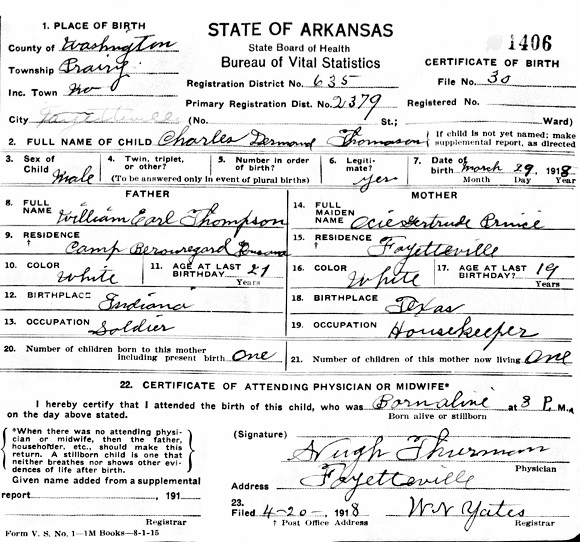 1. PLACE OF BIRTH
County of Washington
Township Prairy
Inc. Town No
City Fayetteville
STATE OF ARKANSAS
State Board of Health
Bureau of Vital Statistics
Registration District No. 635
Primary Registration Dist. No. 2379
(No. St.; Ward)
1406
CERTIFICATE OF BIRTH
File No. 30
Registered No.
2. FULL NAME OF CHILD Charles Dermond Thomason
{ If child is not yet named; make
supplemental report, as directed
3. Sex of Child Male
4. Twin, triplet, or other?
5. Number in order of birth?
(To be answered only in event of plural births)
6. Legiti-mate? yes
7. Date of birth March 29, 1918
Month Day Year
FATHER
8. FULL NAME William Earl Thompson
9. RESIDENCE † Camp Berouregard
10. COLOR White
11. AGE AT LAST BIRTHDAY 21
Years
12. BIRTHPLACE Indiana
13. OCCUPATION Soldier
MOTHER
14. FULL MAIDEN NAME Ocie Gertrude Prince
15. RESIDENCE † Fayetteville
16. COLOR White
17. AGE AT LAST BIRTHDAY 19
Years
18. BIRTHPLACE Texas
19. OCCUPATION Housekeeper
20. Number of children born to this mother
including present birth One
21. Number of children of this mother now living One
22. CERTIFICATE OF ATTENDING PHYSICIAN OR MIDWIFE*
I hereby certify that I attended the birth of this child, who was Born alive at 8 P. M.,
on the day above stated.
Born alive or stillborn
*When there was no attending physi-
cian or midwife, then the father,
householder, etc., should make this
return. A stillborn child is one that
neither breathes nor shows other evi-
dences of life after birth.
(Signature) Hugh Thurman
Physician
Address Fayetteville
Given name added from a supplemental
report , 191
Registrar
23.
Filed 4-20-, 1918 W N Yates
† Post Office Address Registrar
Form V. S. No. 1—1M Books—8-1-15